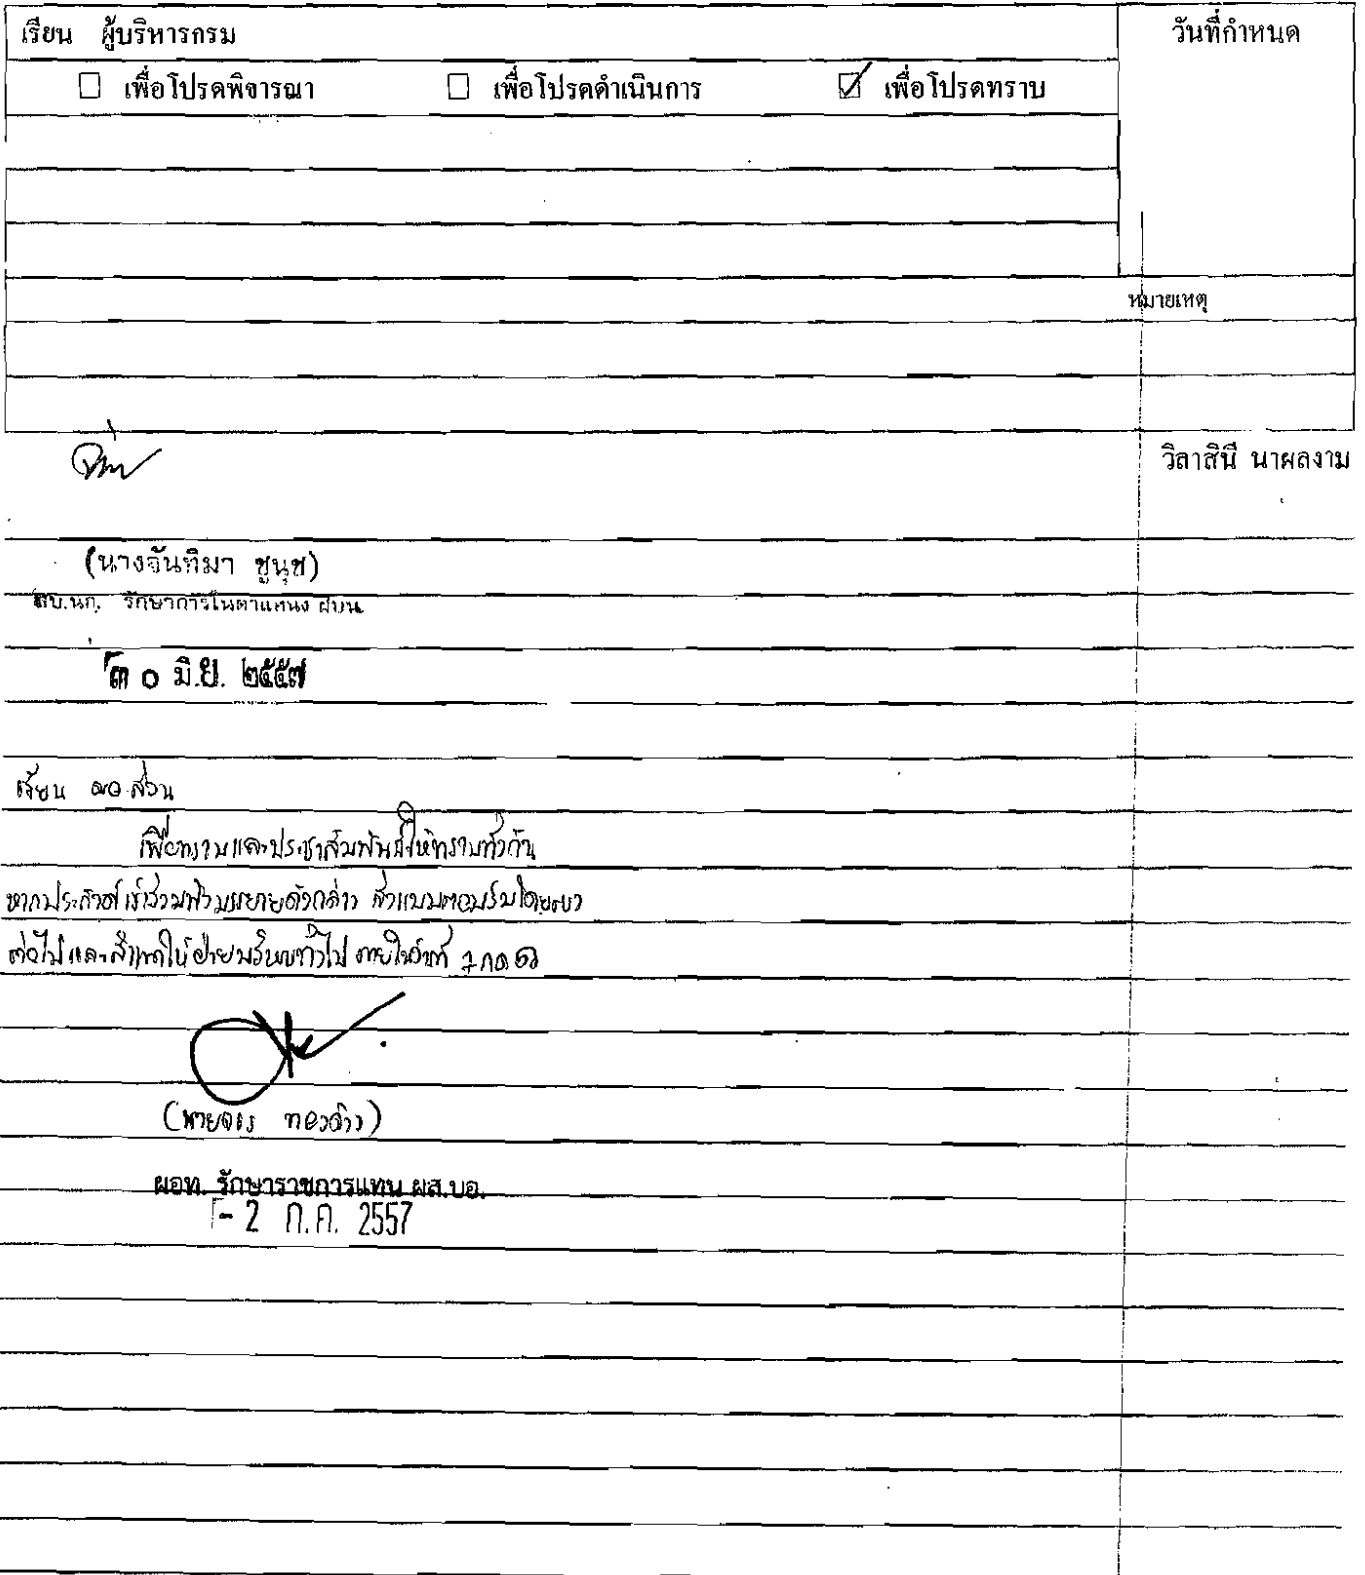 เรียน ผู้บริหารกรม
วันที่กำหนด
เพื่อโปรดพิจารณา เพื่อโปรดดำเนินการ เพื่อโปรดทราบ
หมายเหตุ
วิลาสินี นาผลงาม
(นางจันทิมา ชูนุช)
รักษาการในตำแหน่ง
๓ ๐ มิ.ย. ๒๕๕๗
เรียน ผอ.ส่วน
เพื่อทราบและประชาสัมพันธ์ให้ทราบทั่วกัน
หากประสงค์เข้าร่วมฟังบรรยายดังกล่าว ส่งแบบตอบรับโดยตรง
ต่อไป และสำเนาให้ฝ่ายบริหารทั่วไป ภายในวันที่ 7 กค
ผอท. รักษาราชการแทน ผส.บอ.
- 2 ก.ค. 2557